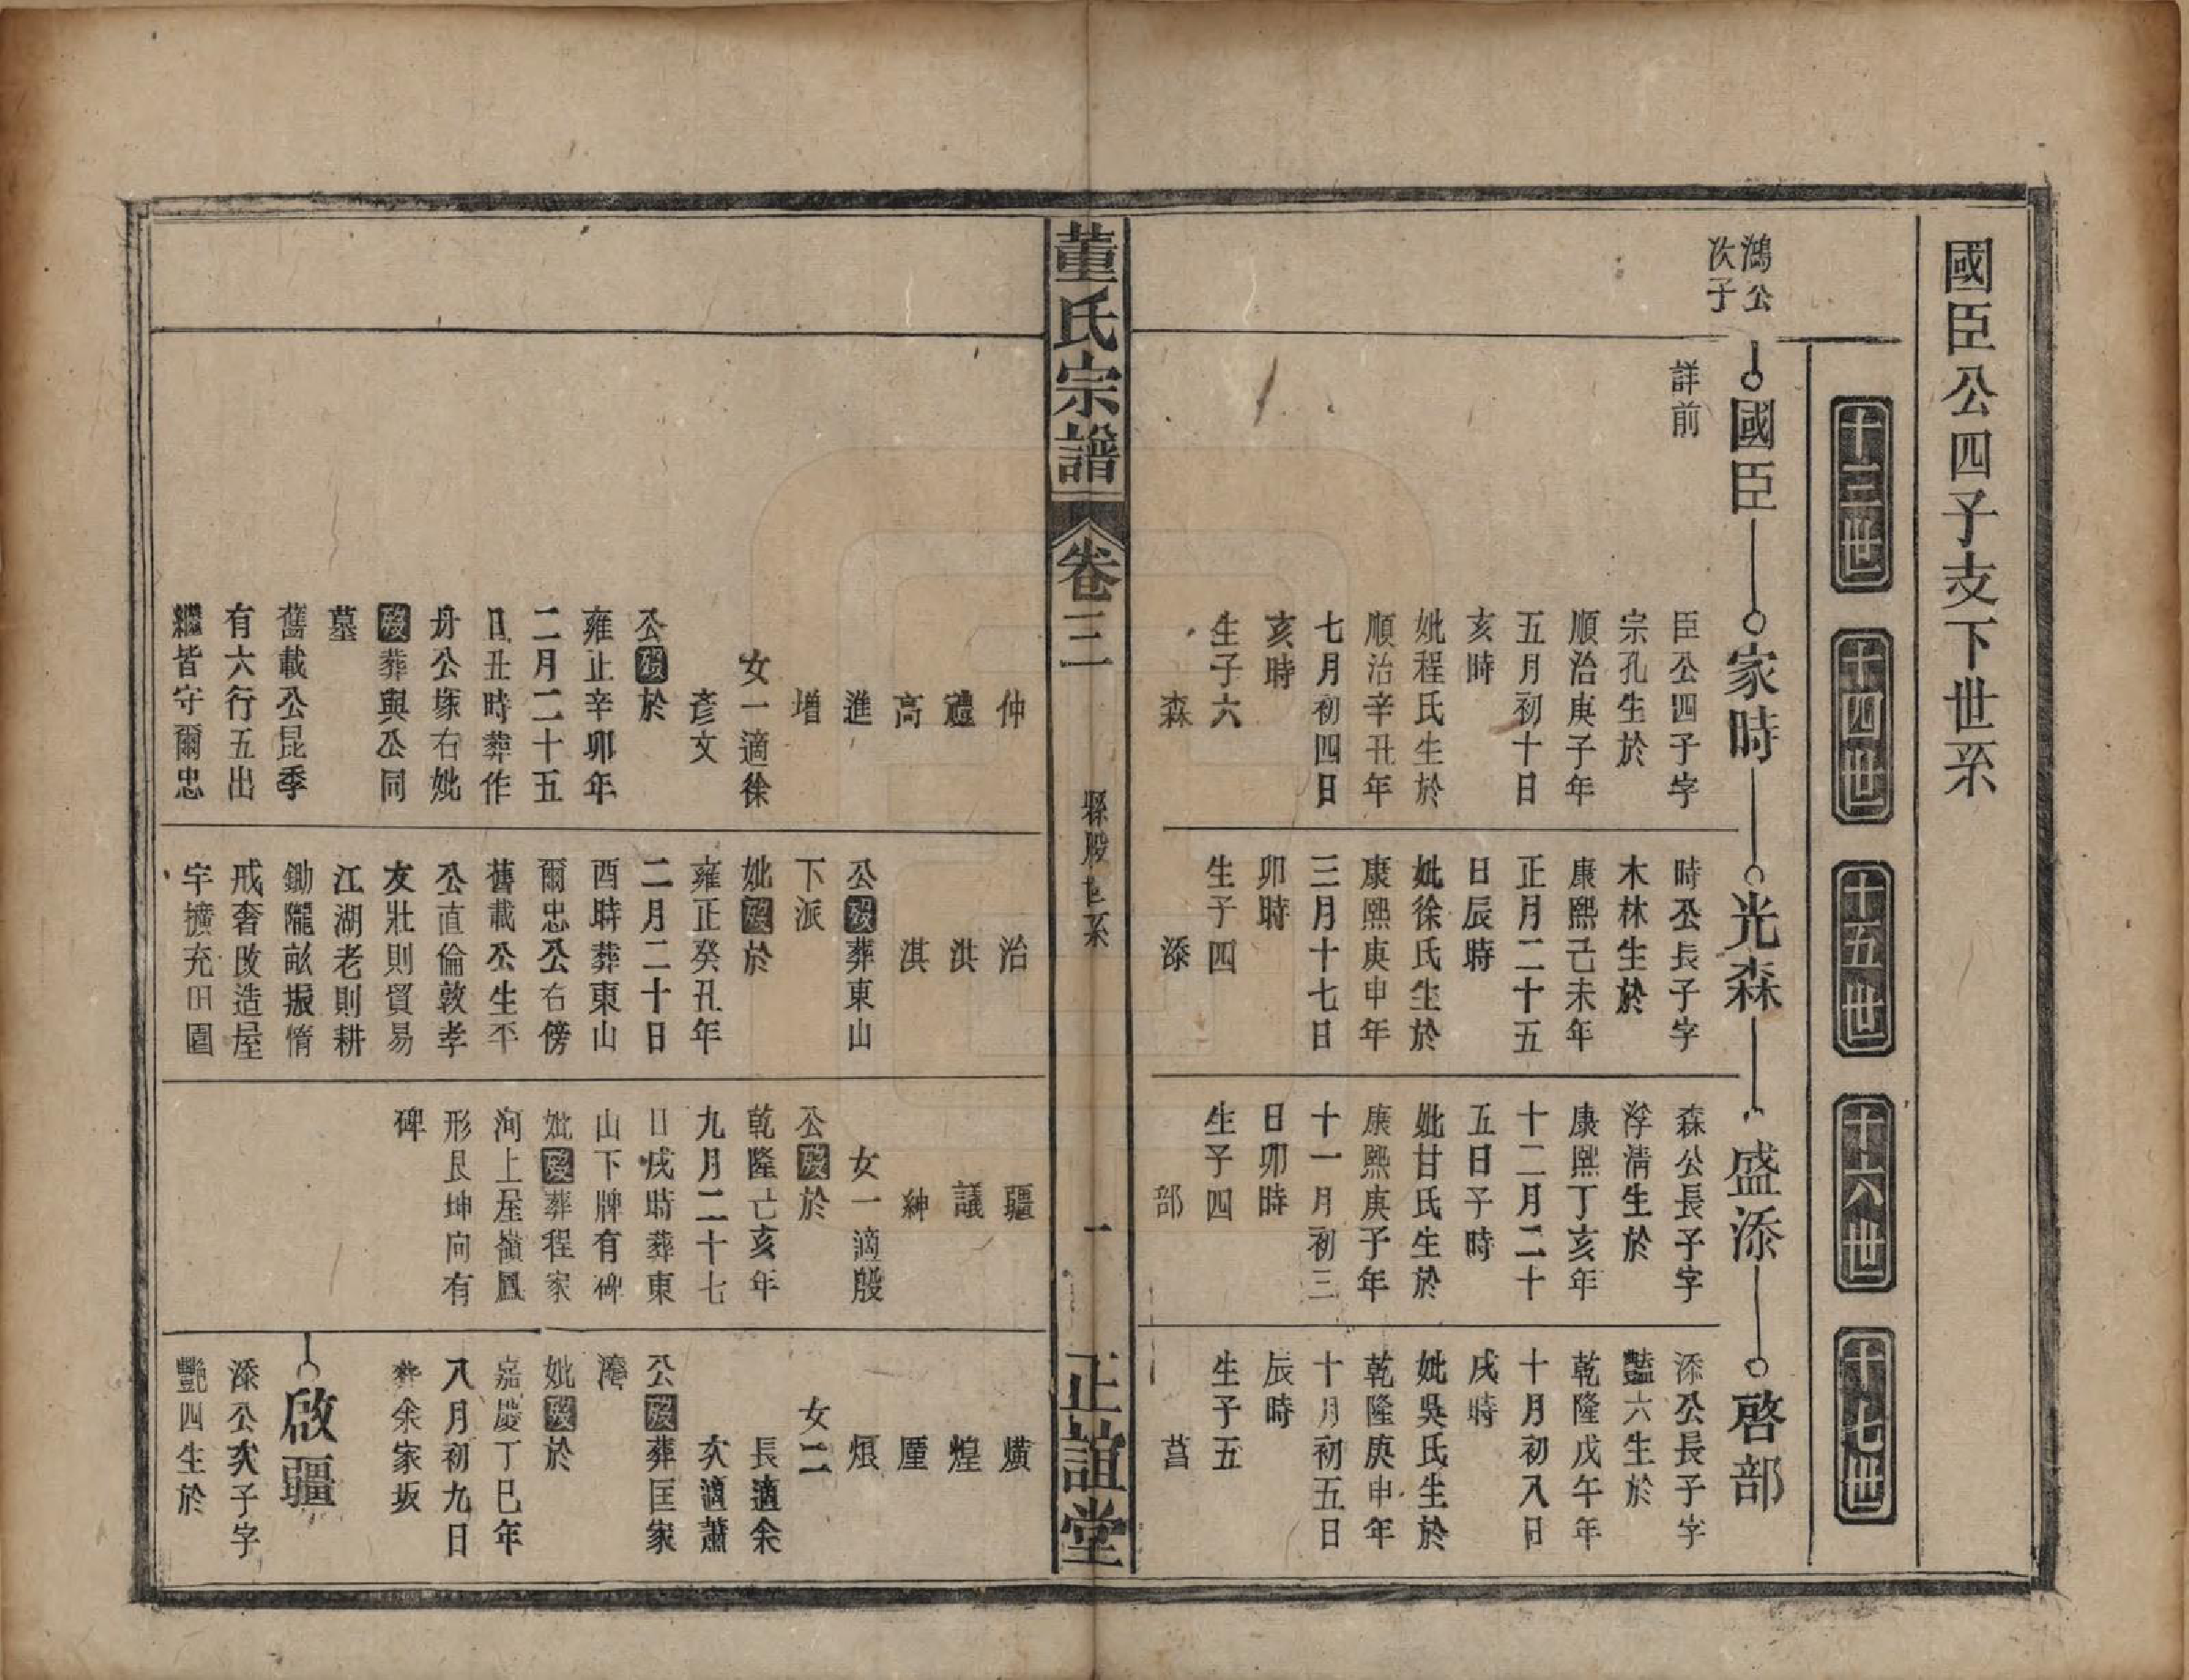 國臣公四子支下世系
十三世
十四世
十五世
十六世
十七世
鴻公
次子
國臣
詳前
家時
臣公四子字
宗孔生於
順治庚子年
五月初十日
亥時
妣程氏生於
順治辛丑年
七月初四日
亥時
生子六
森
光森
時公長子字
木林生於
康熙己未年
正月二十五
日辰時
妣徐氏生於
康熙庚申年
三月十七日
卯時
生子四
添
盛添
森公長子字
浮清生於
康熙丁亥年
十二月二十
五日子時
妣甘氏生於
康熙庚子年
十一月初三
日卯時
生子四
部
啓部
添公長子字
豔六生於
乾隆戊午年
十月初八日
戌時
妣吳氏生於
乾隆庚申年
十月初五日
辰時
生子五
菖
董氏宗譜
卷三
縣股世系
一
正誼堂
仲
禮
高
進
增
女一適徐
彥文
公歿於
雍正辛卯年
二月二十五
日丑時葬作
舟公塚右妣
歿葬與公同
墓
舊載公昆季
有六行五出
繼皆守爾忠
治
洪
淇
公歿葬東山
下派
妣歿於
雍正癸丑年
二月二十日
酉時葬東山
爾忠公右傍
舊載公生平
公直倫敦孝
友壯則貿易
江湖老則耕
鋤隴畝振惰
戒奢改造屋
宇擴充田園
疆
議
紳
女一適殷
公歿於
乾隆己亥年
九月二十七
日戌時葬東
山下牌有碑
妣歿葬程家
河上屋嶺鳳
形艮坤向有
碑
爌
煌
厘
煨
女二
長適余
次適蕭
公歿葬匡家
灣
妣歿於
嘉慶丁巳年
八月初九日
葬余家坂
啟疆
添公次子字
豔四生於